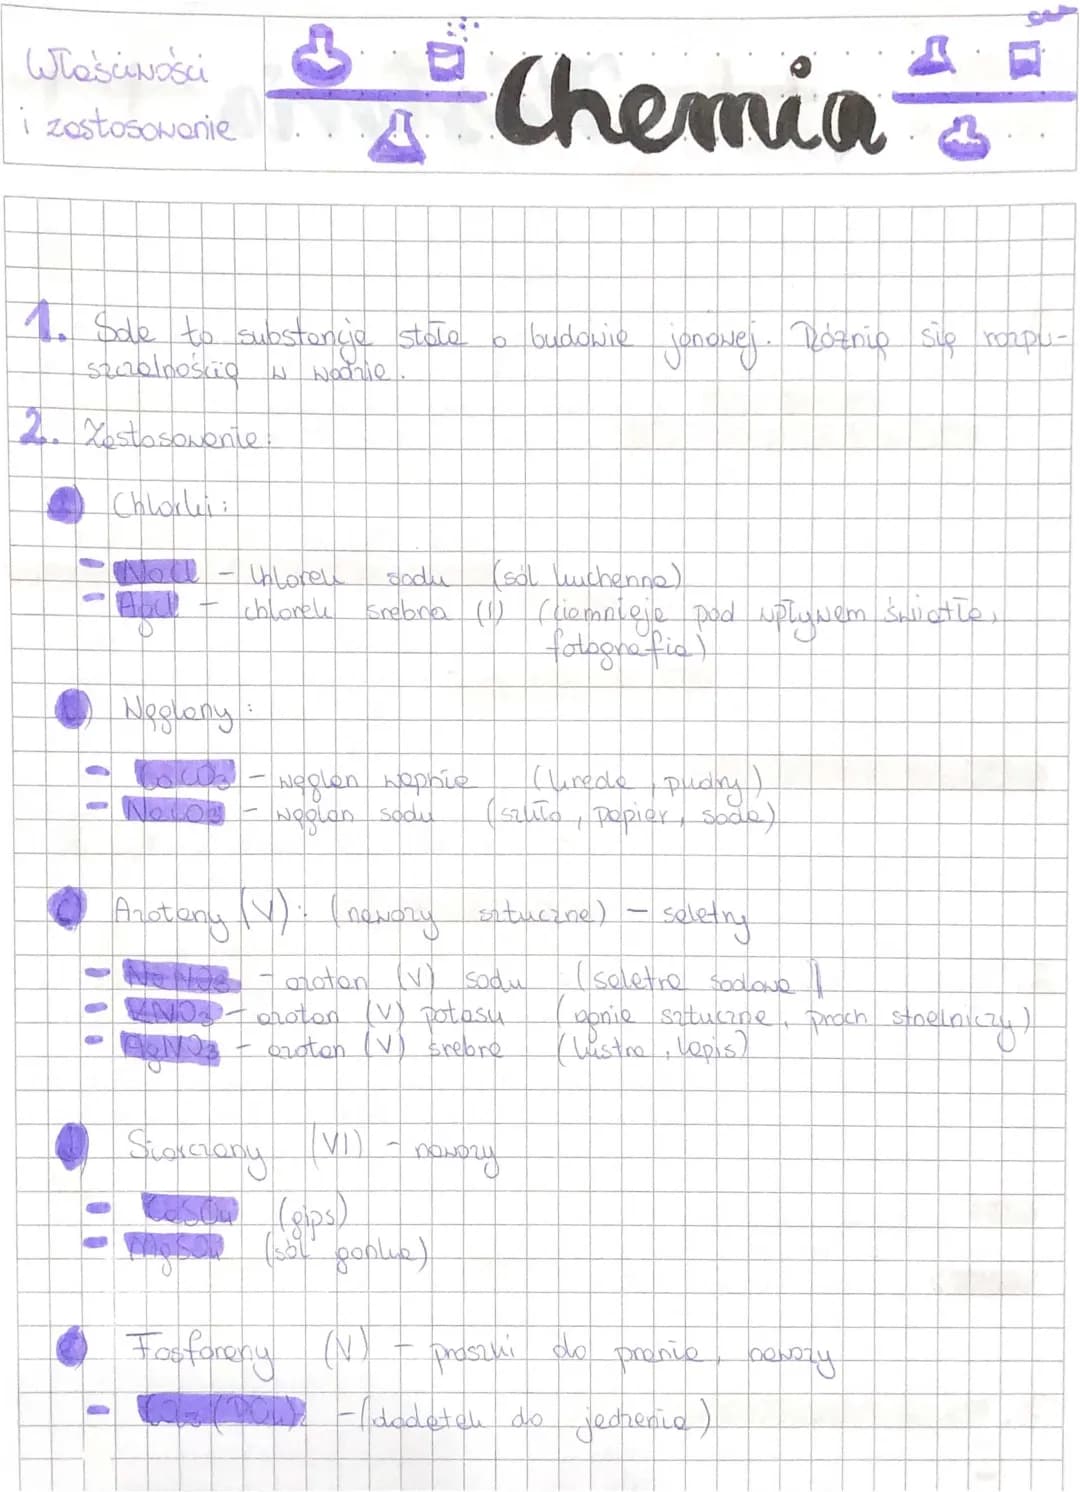 Właściwości
i zastosowanie
Chemia
1. Sole to substancje stałe o budowie jonowej. Różnią się rozpu-
szczalnością w wodzie.
2. Zastosowanie:
a) Chlorki:
- NaCl - chlorek sodu (sól kuchenna)
- AgCl - chlorek srebra (I) (ciemnieje pod wpływem światła,
fotografia)
b) Węglany:
- CaCO3 - węglan wapnia (kreda, pudry)
- Na2CO3 - węglan sodu (szkło, papier, soda)
c) Azotany (V): (nawozy sztuczne) - saletry
- NaNO3 - azotan (V) sodu (saletra sodowa)
- KNO3 - azotan (V) potasu (ognie sztuczne, proch strzelniczy)
- AgNO3 - azotan (V) srebra (lustra, lapis)
d) Siarczany (VI) - nawozy
- CaSO4 (gips)
- MgSO4 (sól gorzka)
e) Fosforany (V) - proszki do prania, nawozy
- (dodatek do jedzenia)